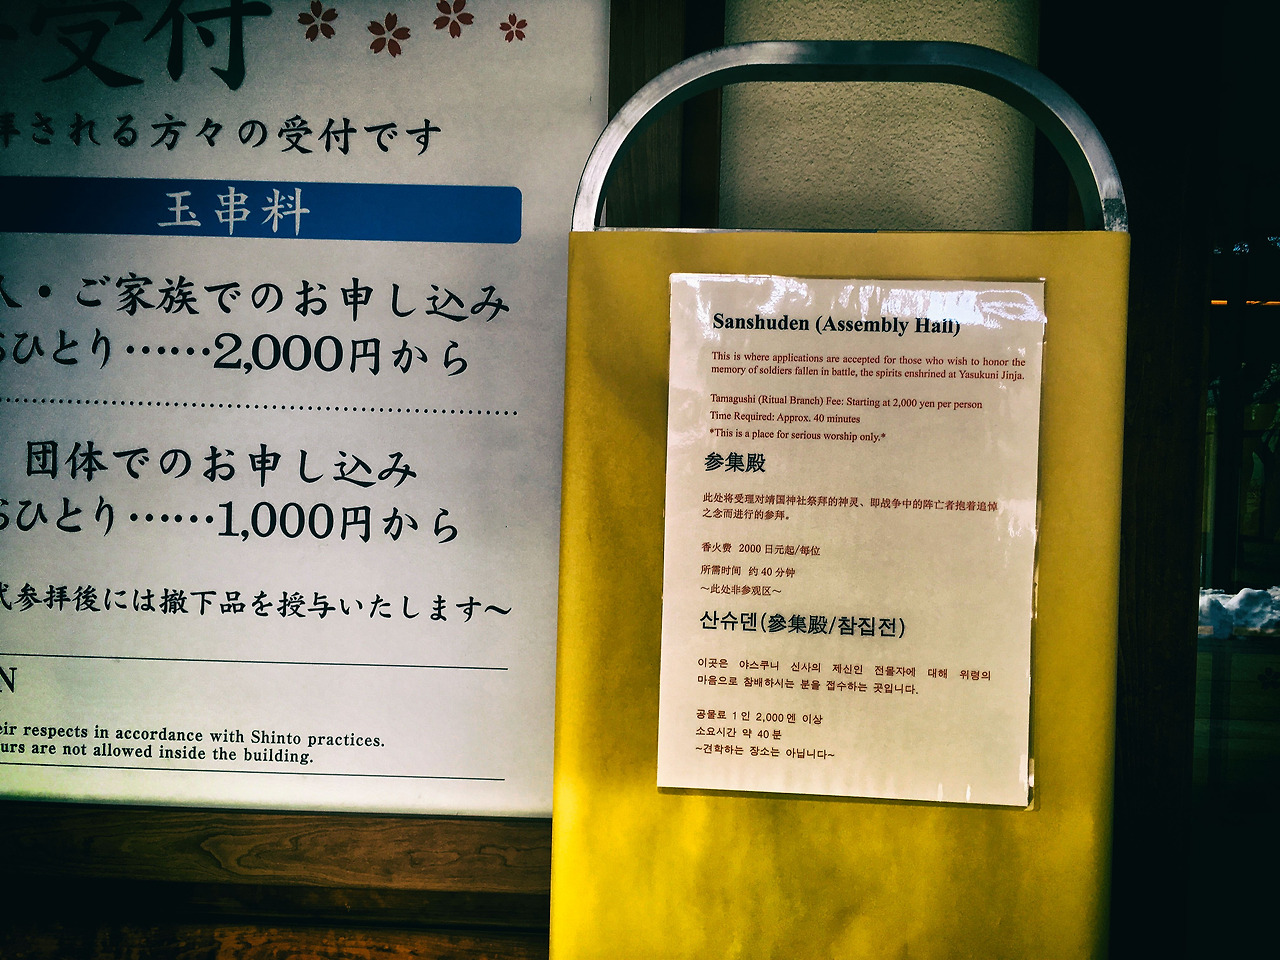 受付
拝される方々の受付です
玉串料
人・ご家族でのお申し込み
おひとり……2,000円から
団体でのお申し込み
おひとり……1,000円から
式参拝後には撤下品を授与いたします～
N
eir respects in accordance with Shinto practices.
urs are not allowed inside the building.
Sanshuden (Assembly Hall)
This is where applications are accepted for those who wish to honor the
memory of soldiers fallen in battle, the spirits enshrined at Yasukuni Jinja.
Tamagushi (Ritual Branch) Fee: Starting at 2,000 yen per person
Time Required: Approx. 40 minutes
*This is a place for serious worship only.*
参集殿
此处将受理对靖国神社祭拜的神灵、即战争中的阵亡者抱着追悼
之念而进行的参拜。
香火费 2000 日元起/每位
所需时间 约 40 分钟
～此处非参观区～
산슈덴(參集殿/참집전)
이곳은 야스쿠니 신사의 제신인 전몰자에 대해 위령의
마음으로 참배하시는 분을 접수하는 곳입니다.
공물료 1 인 2,000 엔 이상
소요시간 약 40 분
~견학하는 장소는 아닙니다~